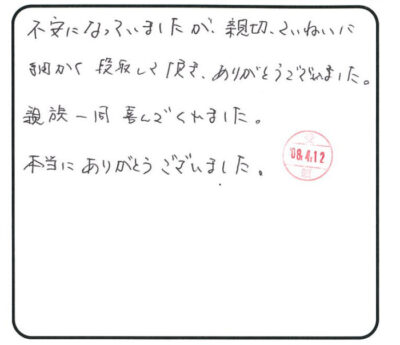 不安になっていましたが、親切、ていねいに
細かく段取して頂き、ありがとうございました。
親族一同喜んでくれました。
本当にありがとうございました。
'08.4.12